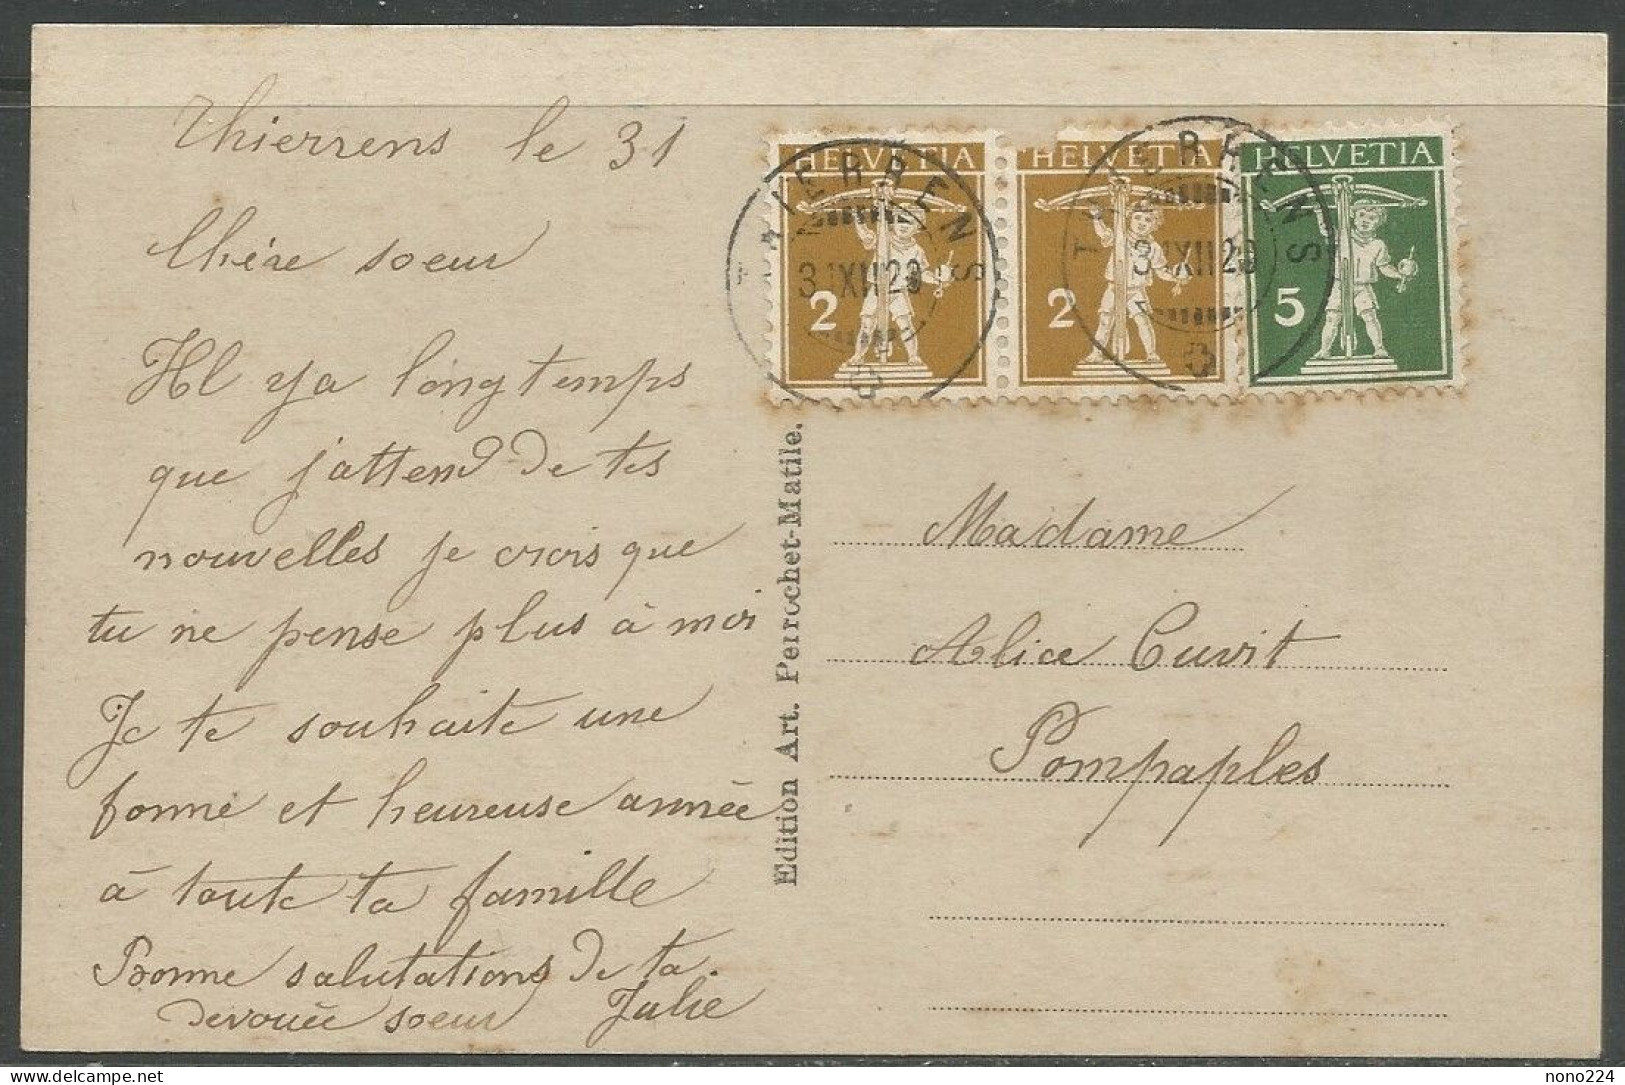 Thierrens le 31
Chère soeur
Il y a longtemps
que j'attend de tes
nouvelles je crois que
tu ne pense plus à moi
Je te souhaite une
bonne et heureuse année
à toute ta famille
Bonne salutations de ta
devouée soeur Julie
Edition Art. Perrochet-Matile.
HELVETIA
2
HELVETIA
2
HELVETIA
5
THIERRENS
31 XII 20
THIERRENS
31 XII 20
Madame
Alice Cuvit
Pompaples
nono224